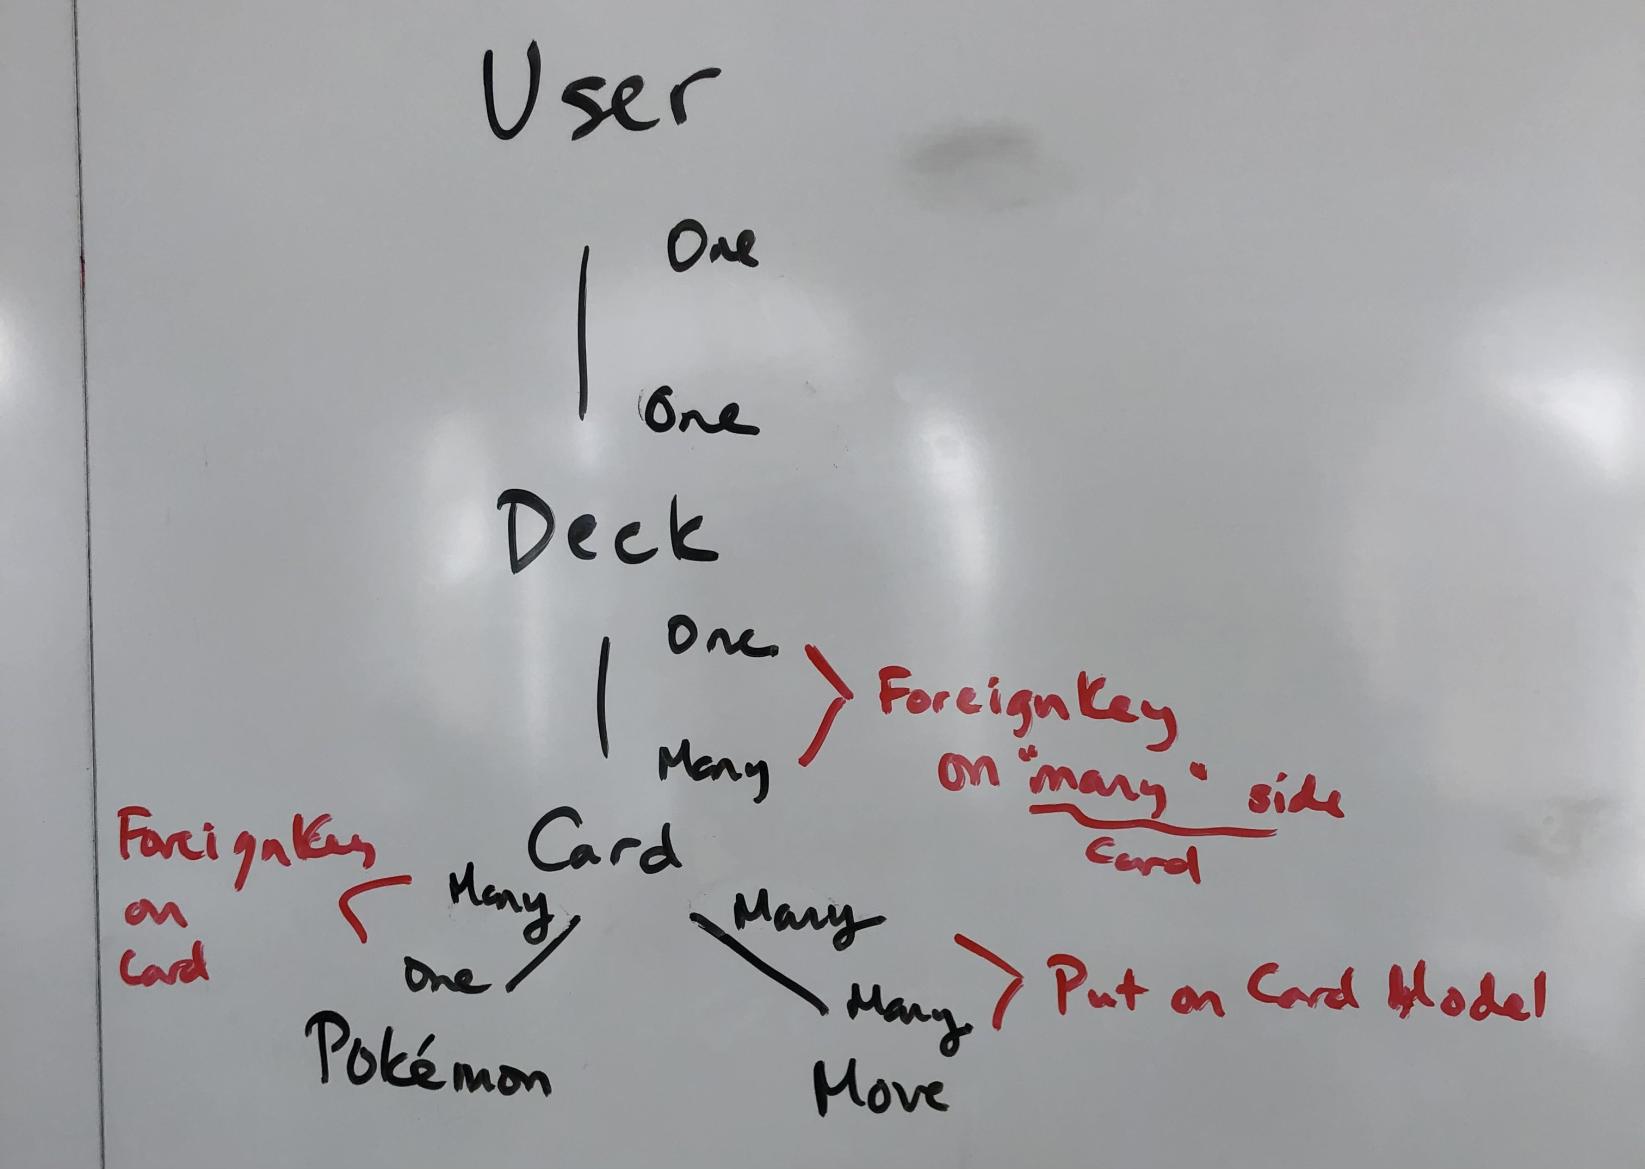 User
One
One
Deck
One
Many
ForeignKey
on "many" side
Card
Card
ForeignKey
on
Card
Many
One
Pokémon
Many
Many
Move
Put on Card Model